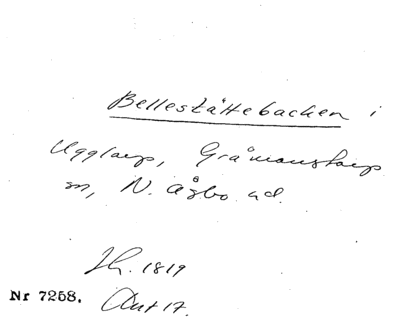 Bellestättebacken i
Ugglarp, Gråmanstorps
sn, N. Åsbo hd.
Jh. 1819
Nr 7258. Akt 17.